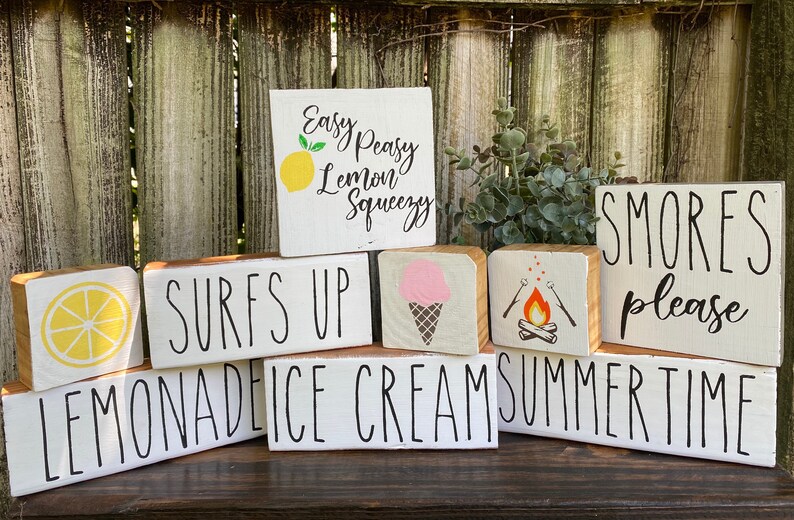 Easy
Peasy
Lemon
Squeezy
SURFS UP
SMORES
please
LEMONADE
ICE CREAM
SUMMERTIME